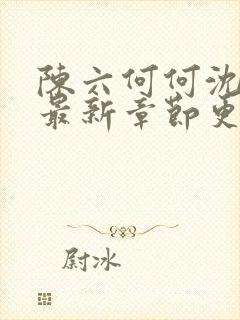 陳六何何沈
最新章節更
尉冰